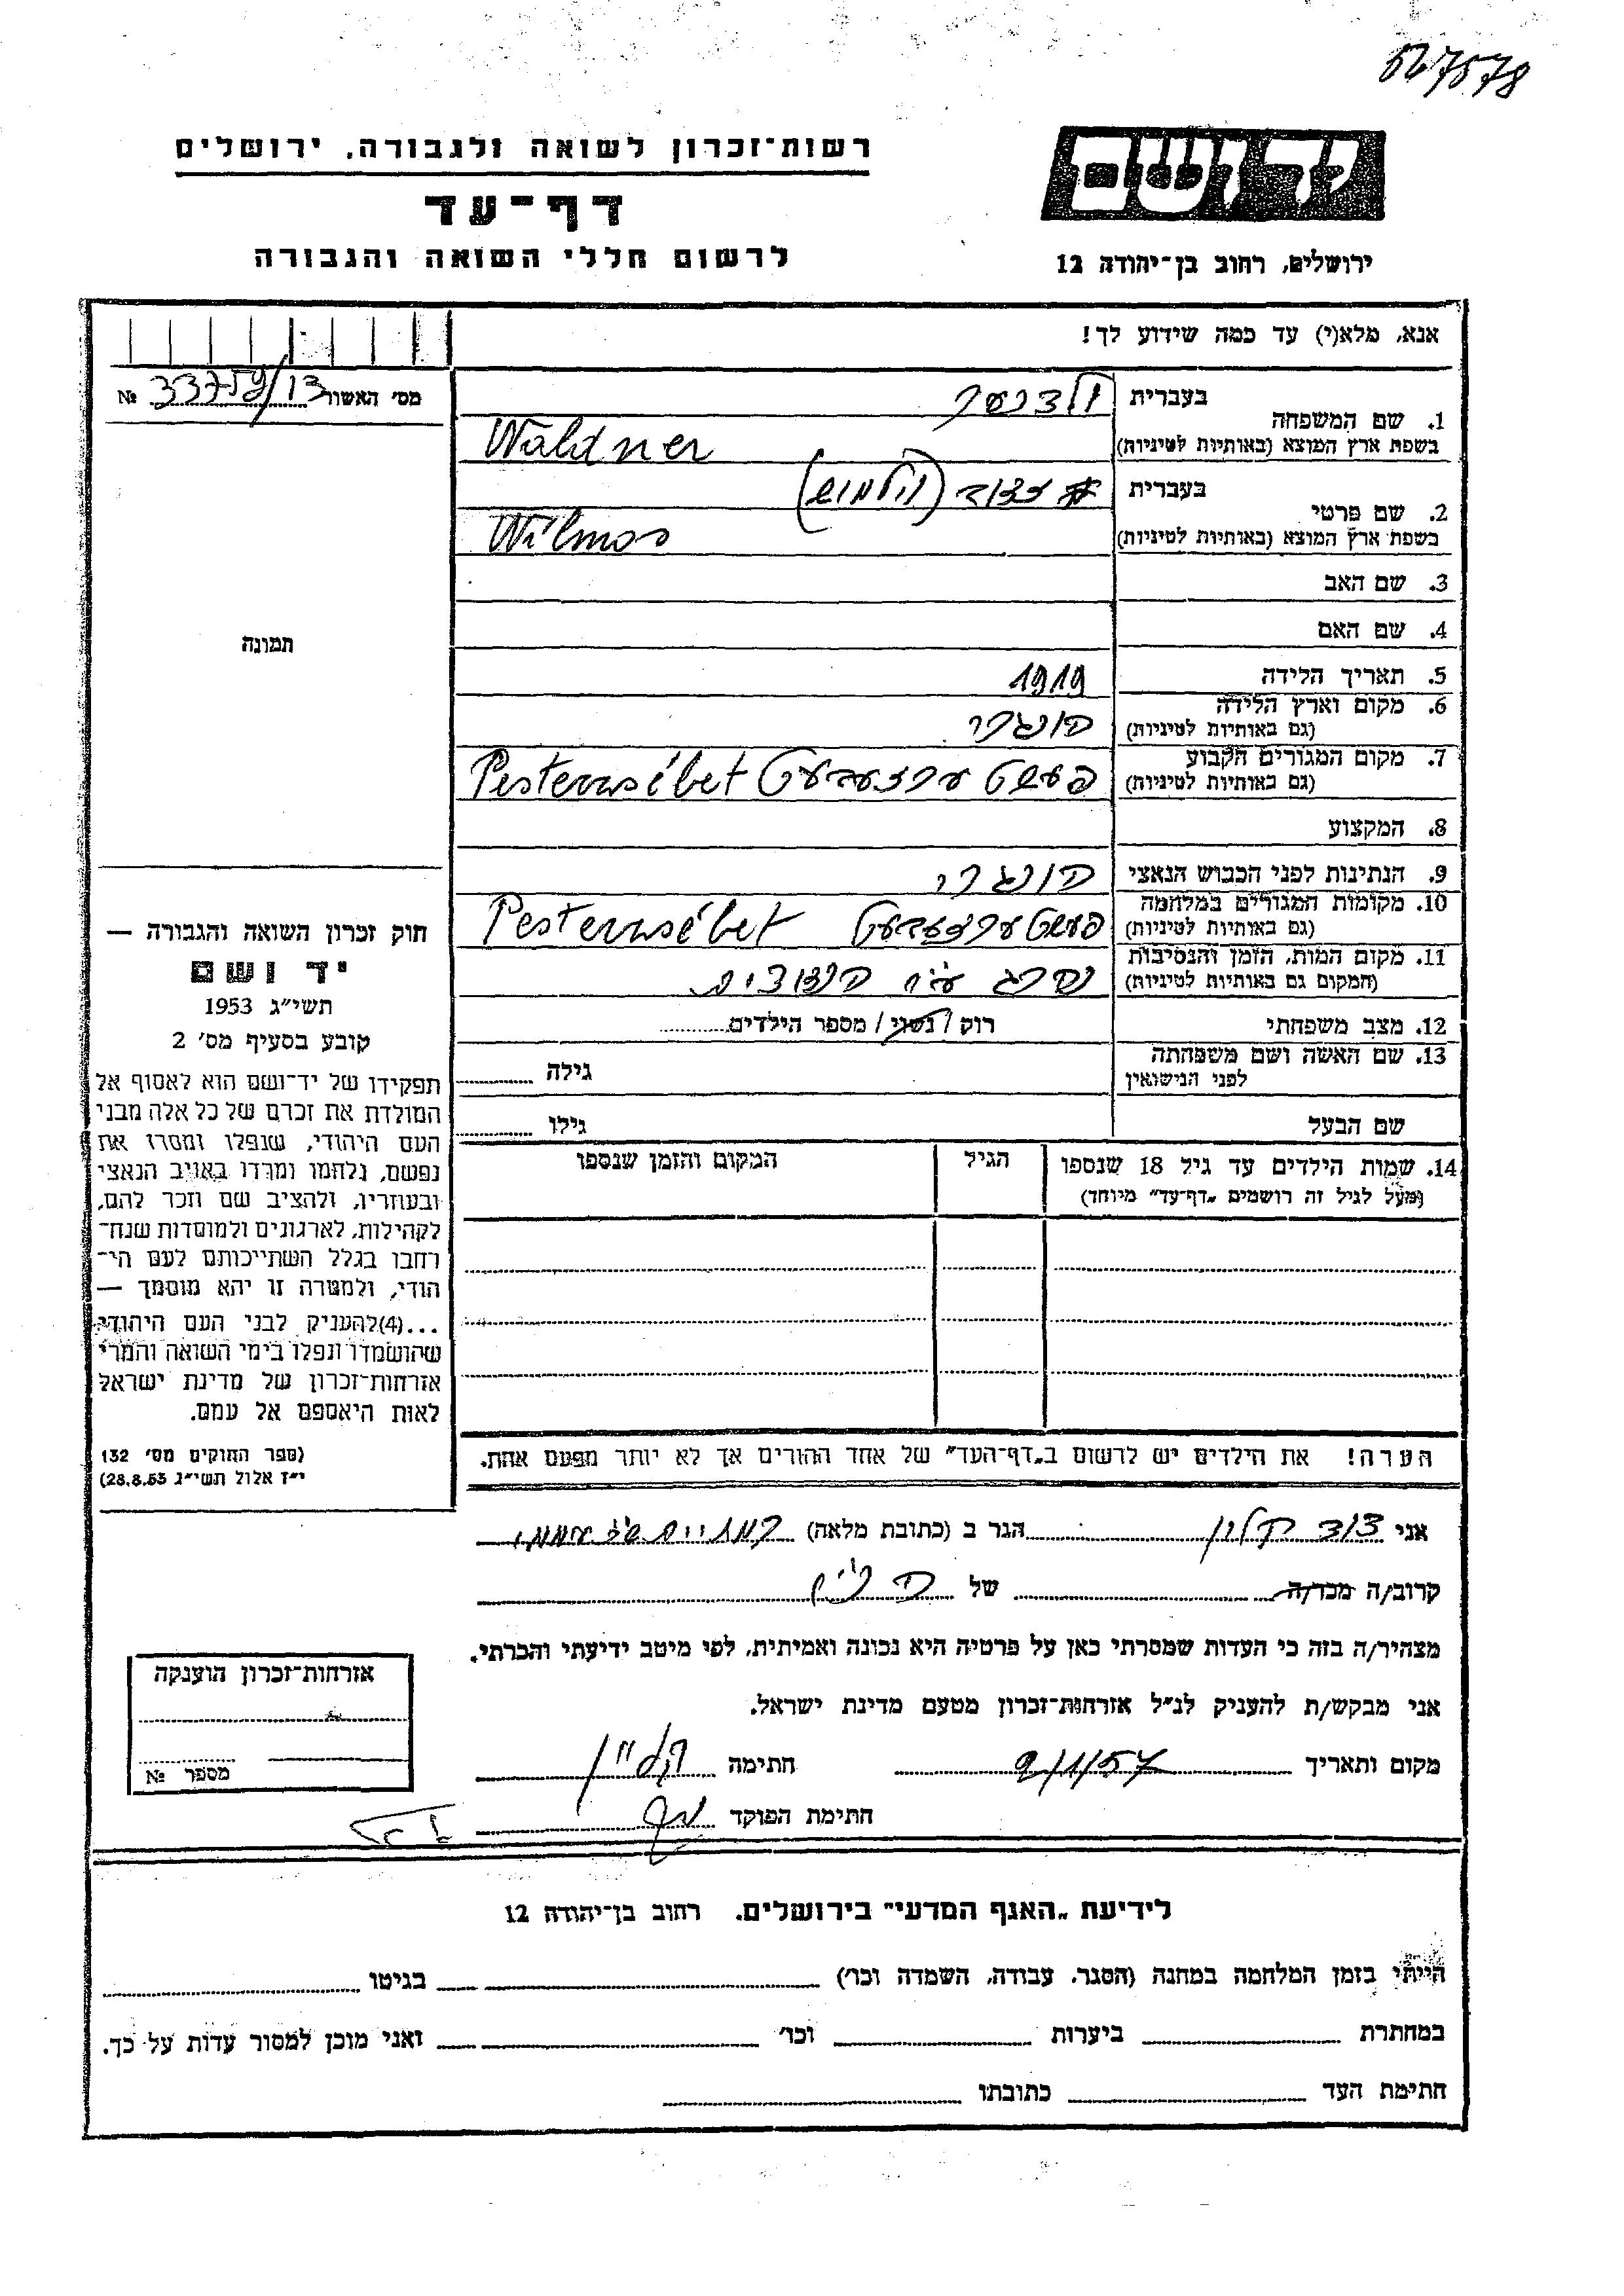 527578
רשות־זכרון לשואה ולגבורה. ירושלים
דף־עד
לרשום חללי השואה והגבורה
יד ושם
ירושלים, רחוב בן־יהודה 12
אנא, מלא(י) עד כמה שידוע לך!
מס׳ האשור 33757/13 №
תמונה
חוק זכרון השואה והגבורה —
יד ושם
תשי״ג 1953
קובע בסעיף מס׳ 2
תפקידו של יד־ושם הוא לאסוף אל
המולדת את זכרם של כל אלה מבני
העם היהודי, שנפלו ומסרו את
נפשם, נלחמו ומרדו באויב הנאצי
ובעוזריו, ולהציב שם וזכר להם,
לקהילות, לארגונים ולמוסדות שנח־
רחבו בגלל השתייכותם לעם הי־
הודי, ולמטרה זו יהא מוסמך —
...(4)להעניק לבני העם היהודי
שהושמדו ונפלו בימי השואה והמרי
אזרחות־זכרון של מדינת ישראל
לאות היאספם אל עמם.
(ספר החוקים מס׳ 132
י״ז אלול תשי״ג 28.8.53)
1. שם המשפחה
בעברית ולדנער
בשפת ארץ המוצא (באותיות לטיניות) Waldner
2. שם פרטי
בעברית (וילמוש)
בשפת ארץ המוצא (באותיות לטיניות) Wilmos
3. שם האב
4. שם האם
5. תאריך הלידה 1919
6. מקום וארץ הלידה הונגרי
(גם באותיות לטיניות)
7. מקום המגורים הקבוע
(גם באותיות לטיניות) פעשט ערזעבעט Pesterzsébet
8. המקצוע
9. הנתינות לפני הכבוש הנאצי הונגרי
10. מקומות המגורים במלחמה
(גם באותיות לטיניות) פעשטערזעבעט Pesterzsébet
11. מקום המות, הזמן והנסיבות
(המקום גם באותיות לטיניות) נהרג ע״י הנאצים
12. מצב משפחתי רוק / נשוי / מספר הילדים
13. שם האשה ושם משפחתה
לפני הנישואין גילה
שם הבעל גילו
14. שמות הילדים עד גיל 18 שנספו הגיל המקום והזמן שנספו
(מעל לגיל זה רושמים „דף־עד״ מיוחד)
הערה! את הילדים יש לרשום ב„דף־העד״ של אחד ההורים אך לא יותר מפעם אחת.
אני דוד קליין הגר ב (כתובת מלאה)
קרוב/ה מכר/ה של
מצהיר/ה בזה כי העדות שמסרתי כאן על פרטיה היא נכונה ואמיתית, לפי מיטב ידיעתי והכרתי.
אני מבקש/ת להעניק לנ״ל אזרחות־זכרון מטעם מדינת ישראל.
מקום ותאריך 2/1/57 חתימה
חתימת הפוקד
אזרחות־זכרון הוענקה
מספר №
לידיעת „האגף המדעי״ בירושלים. רחוב בן־יהודה 12
הייתי בזמן המלחמה במחנה (הסגר, עבודה, השמדה וכו׳) בגיטו
במחתרת ביערות וכו׳ ואני מוכן למסור עדות על כך.
חתימת העד כתובתו